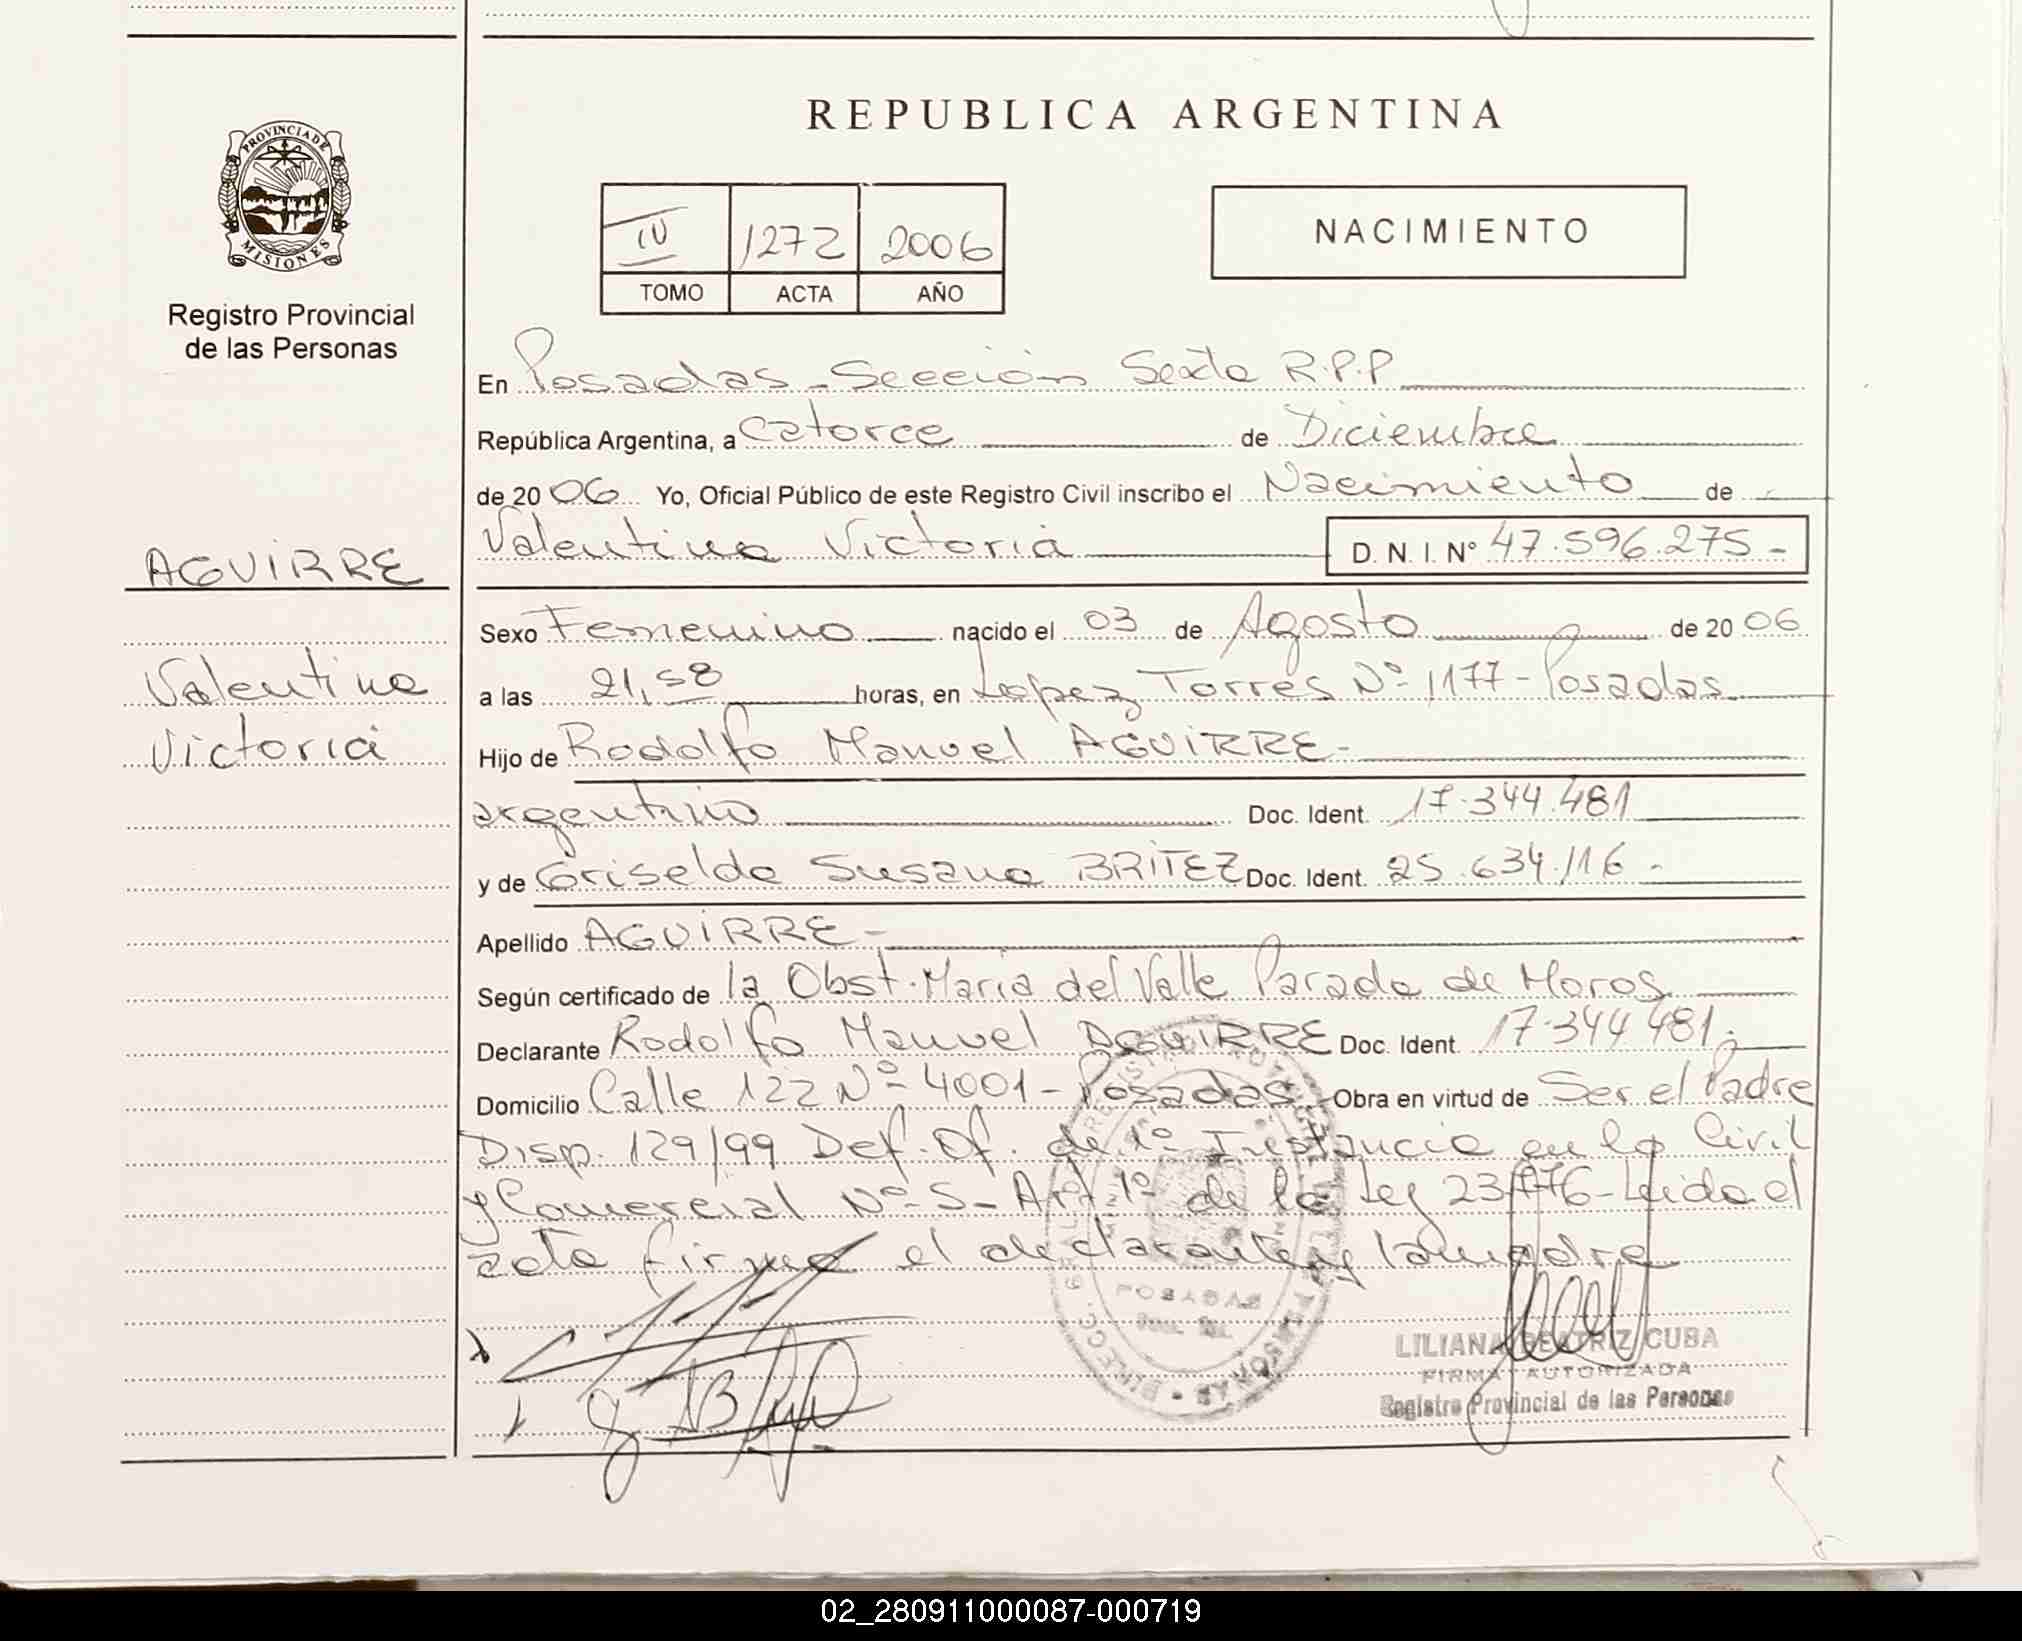 REPUBLICA ARGENTINA
PROVINCIA DE
MISIONES
Registro Provincial
de las Personas
IV 1272 2006
TOMO ACTA AÑO
NACIMIENTO
En Posadas - Sección Sexta R.P.P
República Argentina, a Catorce de Diciembre
de 2006 Yo, Oficial Público de este Registro Civil inscribo el Nacimiento de
Valentina Victoria D. N. I. Nº 47.596.275-
AGUIRRE
Valentina
Victoria
Sexo Femenino nacido el 03 de Agosto de 2006
a las 21,58 horas, en Lopez Torres Nº 1177 - Posadas
Hijo de Rodolfo Manuel AGUIRRE-
argentino Doc. Ident. 17.344.481
y de Griselda Susana BRITEZ Doc. Ident. 25.634.116-
Apellido AGUIRRE-
Según certificado de la Obst. Maria del Valle Parada de Moros
Declarante Rodolfo Manuel AGUIRRE Doc. Ident. 17.344.481-
Domicilio Calle 122 Nº 4001 - Posadas Obra en virtud de Ser el Padre
Disp. 129/99 Def. Of. de 1º Instancia en lo Civil
y Comercial Nº 5 - Art 1º de la Ley Leida el
acta firma el declarante y la madre
POSADAS
LILIANA BEATRIZ CUBA
FIRMA AUTORIZADA
Registro Provincial de las Personas
02_280911000087-000719